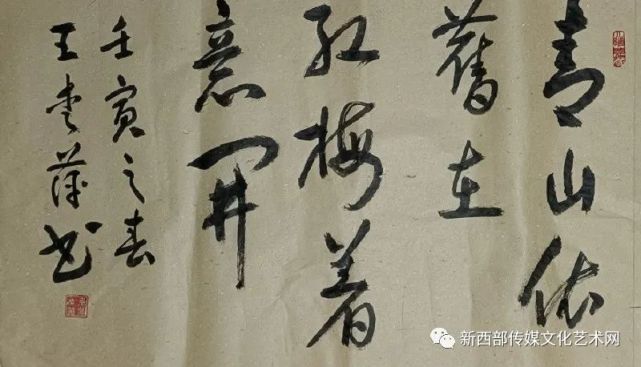 青山依
舊在
紅梅着
意開
壬寅之春
王愛萍书
新西部传媒文化艺术网